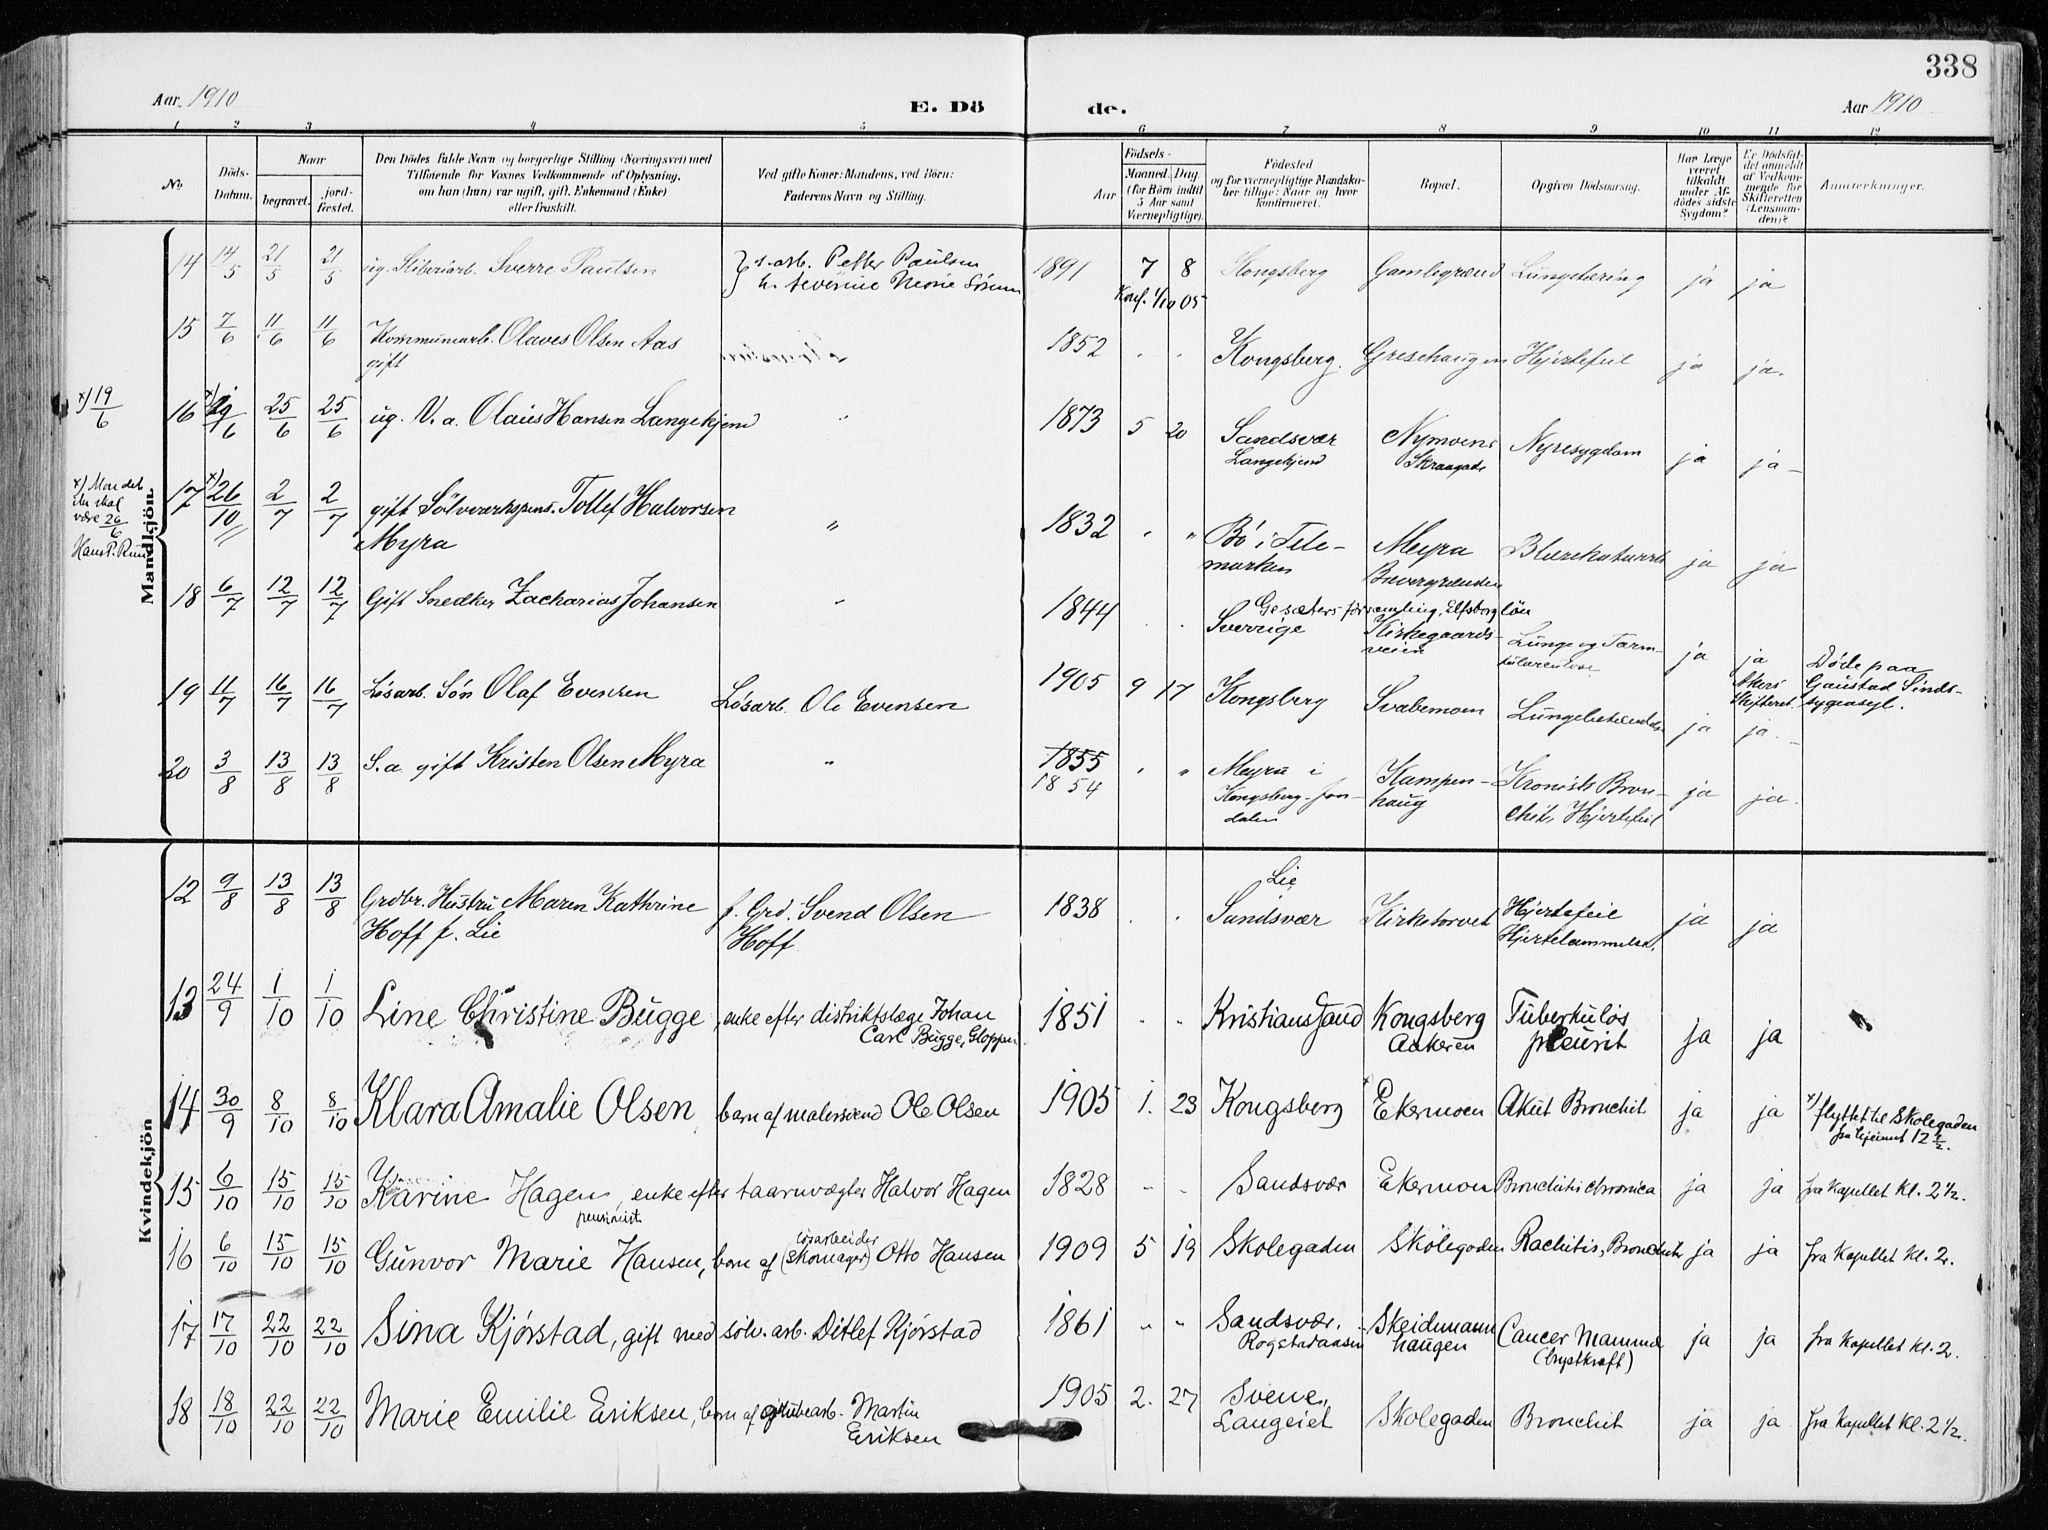 338
Aar. 1910 E. Dö de. Aar 1910
1 2 3 4 5 6 7 8 9 10 11 12
No
Döds-Datum.
Naar
begravet.
jord-fæstet.
Den Dödes fulde Navn og borgerlige Stilling (Næringsvei) med
Tilföiende for Voxnes Vedkommende af Oplysning,
om han (hun) var ugift, gift, Enkemand (Enke)
eller fraskilt.
Ved gifte Koner: Mandens, ved Börn:
Faderens Navn og Stilling.
Födsels-
Aar
Maaned. Dag.
(for Börn indtil
5 Aar samt
Værnepligtige).
Födested
og for værnepligtige Mandska-
ber tillige: Naar og hvor
konfirmeret.
Bopæl.
Opgiven Dödsaarsag.
Har Læge
været
tilkaldt
under Af-
dödes sidste
Sygdom?
Er Dödsfal-
det anmeldt
af Vedkom-
mende for
Skifteretten
(Lensman-
den)?
Anmærkninger.
Mandkjön.
14 14/5 21/5 21/5 ug. Sliberiarb. Sverre Paulsen s.arb. Petter Paulsen 1891 7 8 Kongsberg Gamlegrænd Lungetæring ja ja
Konf. 1/10 05
15 7/6 11/6 11/6 Kommunearb. Olaves Olsen Aas 1852 " " Kongsberg. Hjertefeil ja ja.
gift
x) 19/6
16 x) 19/6 25/6 25/6 ug. V. a. Olaus Hansen Langekjend " 1873 5 20 Sandsvær Nymoens Nyresygdom ja ja
Langekjend Skrangade
x) Man det
der skal
være 26/6
Hans P. Ruud
17 x) 26/10 2/7 2/7 gift Sölvværkspens. Tollef Halvorsen " 1832 " " Bö i Tele- Myra Blærekatarrh ja ja
Myra marken Bævergrænden
18 6/7 12/7 12/7 Gift Snedker Zacharias Johansen " 1844 . . Gesäters församling, Elfsborg län
Sverrige Kirkegaards- Lunge og Tarm- ja ja
veien tuberculose Akers Skifteret. Döde paa Gaustad Sinds-sygeasyl.
19 11/7 16/7 16/7 Løsarb. Søn Olaf Evensen Løsarb. Ole Evensen 1905 9 17 Kongsberg Svabemoen ja ja
20 3/8 13/8 13/8 S.a. gift Kristen Olsen Myra " 1855 " " Myra i Kampen- Kronisk Bron- ja ja.
1854 Kongsberg. Jon- haug chit, Hjertefeil
dalen
Kvindekjön
12 9/8 13/8 13/8 Grdbr. Hustru Maren Kathrine f. Grd. Svend Olsen 1838 . . Lie Kirketorvet Hjertefeil ja ja
Hoff f. Lie Hoff Sandsvær Hjertelammelse.
13 24/9 1/10 1/10 Line Christine Bugge, enke efter distriktslæge Johan 1851 " " Kristianssand Kongsberg Tuberkuløs ja ja
Carl Bugge, Gloppen Aakeren pleurit
14 30/9 8/10 8/10 Klara Amalie Olsen, barn af malersvend Ole Olsen 1905 1. 23 Kongsberg x Ekermoen Akut Bronchit ja ja x) flyttet til Skolegaden
fra hjemmet 12 1/2.
15 6/10 15/10 15/10 Karine Hagen, enke efter taarnvægter Halvor Hagen 1828 " " Sandsvær Ekermoen Bronchitis chronica ja ja fra Kapellet Kl. 2 1/2.
pensionist
16 6/10 15/10 15/10 Gunvor Marie Hansen, barn af løsarbeider (skomager) Otto Hansen 1909 5 19 Skolegaden Skolegaden Rachitis, Bronchit ja ja fra Kapellet Kl. 2.
17 17/10 22/10 22/10 Sina Kjørstad, gift med sølv. arb. Ditlef Kjørstad 1861 " " Sandsvær, Skeidmann Cancer Mamma ja ja fra Kapellet Kl. 2.
haugen (brystkræft)
18 18/10 22/10 22/10 Marie Emilie Eriksen, barn af grubearb. Martin 1905 2. 27 Svene, Skolegaden Bronchit ja ja fra Kapellet Kl. 2 1/2.
Eriksen Langeiet